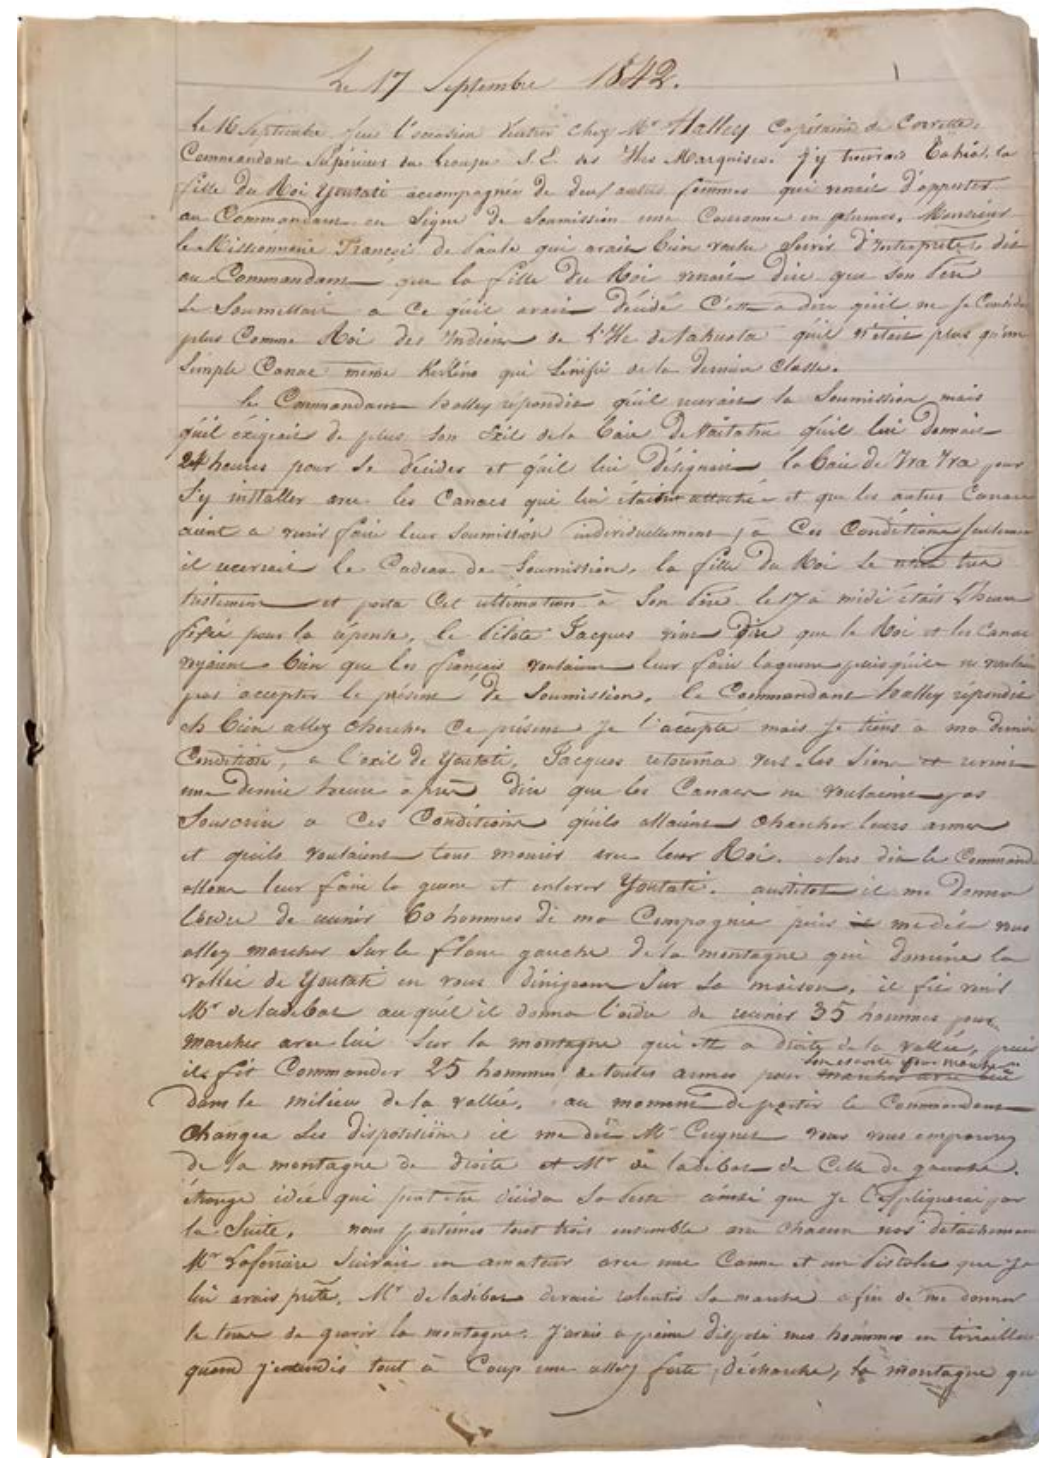 Le 17 Septembre 1842.
1
Le 16 Septembre j'eus l'occasion d'entrer chez Mr Halley Capitaine de Corvette,
Commandant Supérieur du Groupe S.E. des Iles Marquises. J'y trouvai la
fille du Roi Youtati accompagnée de deux autres femmes qui venait d'apporter
au Commandant en Signe de Soumission une Couronne en plumes. Monsieur
le Missionnaire François de Paule qui avait bien voulu Servir d'Interprète, dit
au Commandant que la fille du Roi venait dire que Son Père
Se Soumettait a ce qu'il avait décidé C'est a dire qu'il ne Se
plus Comme Roi des Indiens de l'Ile de qu'il n'était plus qu'un
Simple Canac même Kikino qui Sinifie de la dernière Classe.
le Commandant halley répondit qu'il recevait la Soumission mais
qu'il exigeait de plus Son Exil de la baie de Vaitahu qu'il lui donnait
24 heures pour Se décider et qu'il lui désignait la baie de Iva Iva pour
S'y installer avec les Canacs qui lui étaient attachés et que les autres Canacs
aient a venir faire leur Soumission individuellement, à Ces Conditions Seulement
il recevrait le Cadeau de Soumission. la fille du Roi Se retira très
tristement et porta Cet ultimatum à Son Père. le 17 à midi était l'heure
fixée pour la réponse, le Pilote Jacques vint dire que le Roi et les Canacs
voyaient bien que les français voulaient leur faire la guerre puisqu'ils ne voulaient
pas accepter le présent de Soumission. le Commandant halley répondit
eh bien allez chercher ce présent je l'accepte mais je tiens a ma dernière
Condition, a l'exil de Youtati. Jacques retourna vers les Siens et revint
une demie heure après dire que les Canacs ne voulaient pas
Souscrire a Ces Conditions qu'ils allaient chercher leurs armes
et qu'ils voulaient tous mourir avec leur Roi. alors dit le Commandant
allons leur faire la guerre et enlever Youtati. aussitôt il me donna
l'ordre de reunir 60 hommes de ma Compagnie puis il me dit vous
allez marcher Sur le flanc gauche de la montagne qui domine la
vallée de Youtati en vous dirigeant Sur Sa maison, il fit venir
Mr de ladebat auquel il donna l'ordre de reunir 35 hommes pour
marcher avec lui Sur la montagne qui est a droite de la vallée, puis
il fit Commander 25 hommes de toutes armes pour marcher avec lui
son escorte pour marcher
dans le milieu de la vallée. au moment de partir le Commandant
changea Ses dispositions il me dit Mr Cugnet vous vous emparerez
de la montagne de droite et Mr de ladebat de Celle de gauche.
étrange idée qui peut être décida Sa perte ainsi que je l'expliquerai par
la Suite. nous partimes tout trois ensemble avec chacun nos détachements
Mr Laferrière Suivait en amateur avec une Canne et un Pistolet que je
lui avais prêté. Mr de ladebat devait ralentir Sa marche afin de me donner
le tems de gravir la montagne. J'avais a peine disposé mes hommes en tirailleurs
quand j'entendis tout à Coup une assez forte décharche, la montagne qu